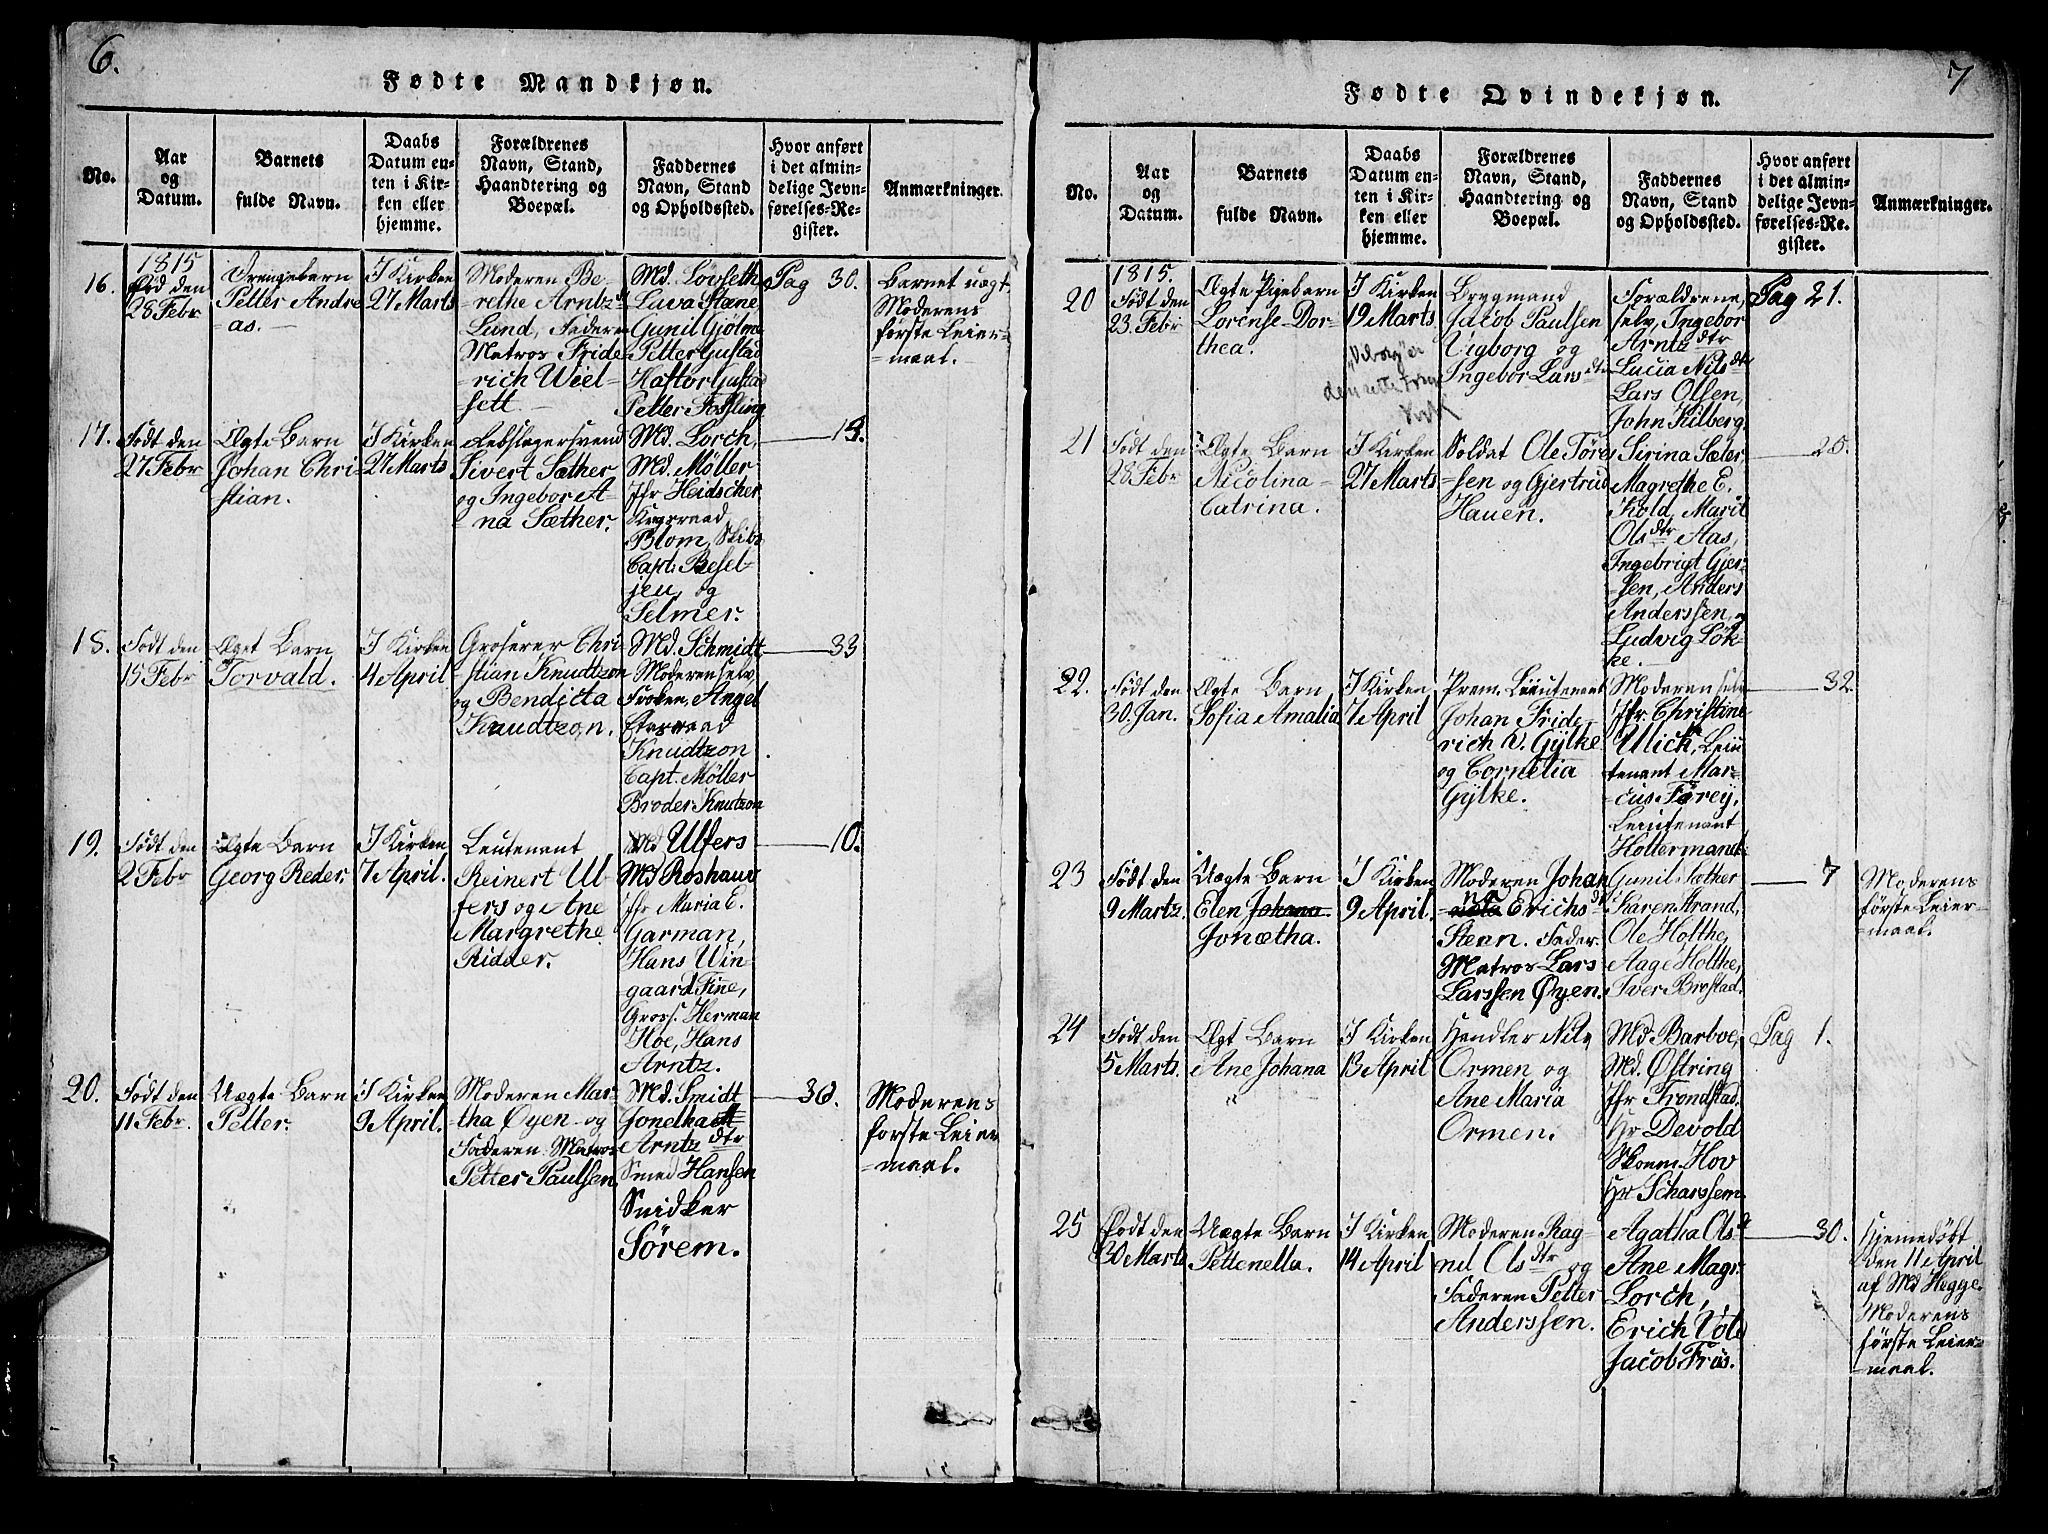 6.
Fødte Mandkjøn.
No.
Aar
og
Datum.
Barnets
fulde Navn.
Daabs
Datum en-
ten i Kir-
ken eller
hjemme.
Forældrenes
Navn, Stand,
Haandtering og
Boepæl.
Faddernes
Navn, Stand
og Opholdssted.
Hvor anført
i det almin-
delige Jevn-
førelses-Re-
gister.
Anmærkninger.
16.
1815
Fød den
28 Febr
Drengebarn
Petter Andre
as.
I Kirken
27 Marts
Moderen Be-
rethe Arntz dt
Lund, Faderen
Matros Fride
rich Wiel-
sett.
Md. Løvseth
Luva Stane
Gunil Gjølme
Petter Gustad
Haftor Gustad
Petter Fosling
Pag 30.
Barnet uægt
Moderens
første Leier-
maal.
17.
Født den
27 Febr
Ægte Barn
Johan Chri
stian.
I Kirken
27 Marts
Rebslagersvend
Sivert Sæther
og Ingebor A-
na Sæther.
Md. Lorch,
Md. Møller
Jfr Heidscher
Krigsraad
Blom, Skibs
Capt: Besel-
jeu, og
Selmer.
19.
18.
Født den
15 Febr
Ægt Barn
Torvald.
I Kirken
4 April
Groserer Chri-
stian Knudtzon
og Bendicta
Knudtzon.
Md. Schmidt,
Moderen selv,
Frøken Angel
Etatsraad
Knudtzon
Capt. Møller
Broder Knutzon
33
19.
Født den
2 Febr
Ægte Barn
Georg Reder.
I Kirken
7 April.
Leutenant
Reinert Ul
fers og Ane
Margrethe
Ridder.
Md Ulfers
Md Roshauv
Jfr Maria E.
Garman,
Hans Win-
gaard Fine,
Gross. Herman
Hoe, Hans
Arntz.
10.
20.
Født den
11 Febr.
Uægte Barn
Petter.
I Kirken
9 April.
Moderen Mar-
tha Øyen og
Faderen Matros
Petter Paulsen.
Md. Smidt
Jonetha
Arntz dtr
Smed Hansen
Snidker
Sørem.
36.
Moderens
første Leier
maal.
7
Fødte Qvindekjøn.
No.
Aar
og
Datum.
Barnets
fulde Navn.
Daabs
Datum en-
ten i Kir-
ken eller
hjemme.
Forældrenes
Navn, Stand,
Haandtering og
Boepæl.
Faddernes
Navn, Stand
og Opholdssted.
Hvor anført
i det almin-
delige Jevn-
førelses-Re-
gister.
Anmærkninger.
20
1815.
Født den
23. Febr
Ægte Pigebarn
Lorense Dor-
thea.
I Kirken
19 Marts
"Viborg" er
den rette Form
Brygmand
Jacob Paulsen
Vigborg og
Ingebor Lars dtr
Forældrene
selv, Ingebor
Arntz dtr
Lucia Nils dtr
Lars Olsen,
John Kilberg.
Pag 21.
21
Født den
28 Febr
Ægte Barn
Nicolina
Catrina.
I Kirken
27 Marts
Soldat Ole Tøre
sen og Gjertrud
Hauen.
Sirina Sæter,
Magrethe E.
Kold, Marit
Ols dtr Aas,
Ingebrigt Gjer-
sen, Anders
Anderssen, og
Ludvig Løk-
ke.
25.
22.
Født den
30. Jan.
Ægte Barn
Sofia Amalia
I Kirken
7 April
Prem. Lieutenant
Johan Fride-
rich v. Gylke
og Cornelia
Gylke.
Moderen selv
Jfr. Christine
Ulich, Leiu
tenant Mar-
cus Forey,
Leiutenant
Holtermand.
32.
23
Født den
9 Martz.
Uægte Barn
Elen Johana
Jonætha.
I Kirken
9 April.
Moderen Johan
na Erichs dt
Steen. Fader.
Matros Lars
Larssen Øyen.
Gunil Sæther
Karen Strand,
Ole Holthe,
Aage Holthe,
Iver Brøstad.
7
Moderens
første Leier-
maal.
24
Født den
5 Marts.
Ægt Barn
Ane Johana
I Kirken
13 April
Handler Nils
Ormen og
Ane Maria
Ormen.
Md. Barboe,
Md. Østring
Jfr Trondstad.
Hr Devold
Skoem. Hov
Hr Scharssem.
Pag 1.
25
Født den
30 Marts
Uægte Barn
Pettenella.
I Kirken
14 April
Moderen Rag-
nil Ols dtr og
Faderen Petter
Anderssen.
Agatha Ols dt
Ane Magr.
Lorch,
Erich Vold
Jacob Friis.
30.
Hjemedøbt
den 11 April
af Md Hegge.
Moderens
første Leier-
maal.